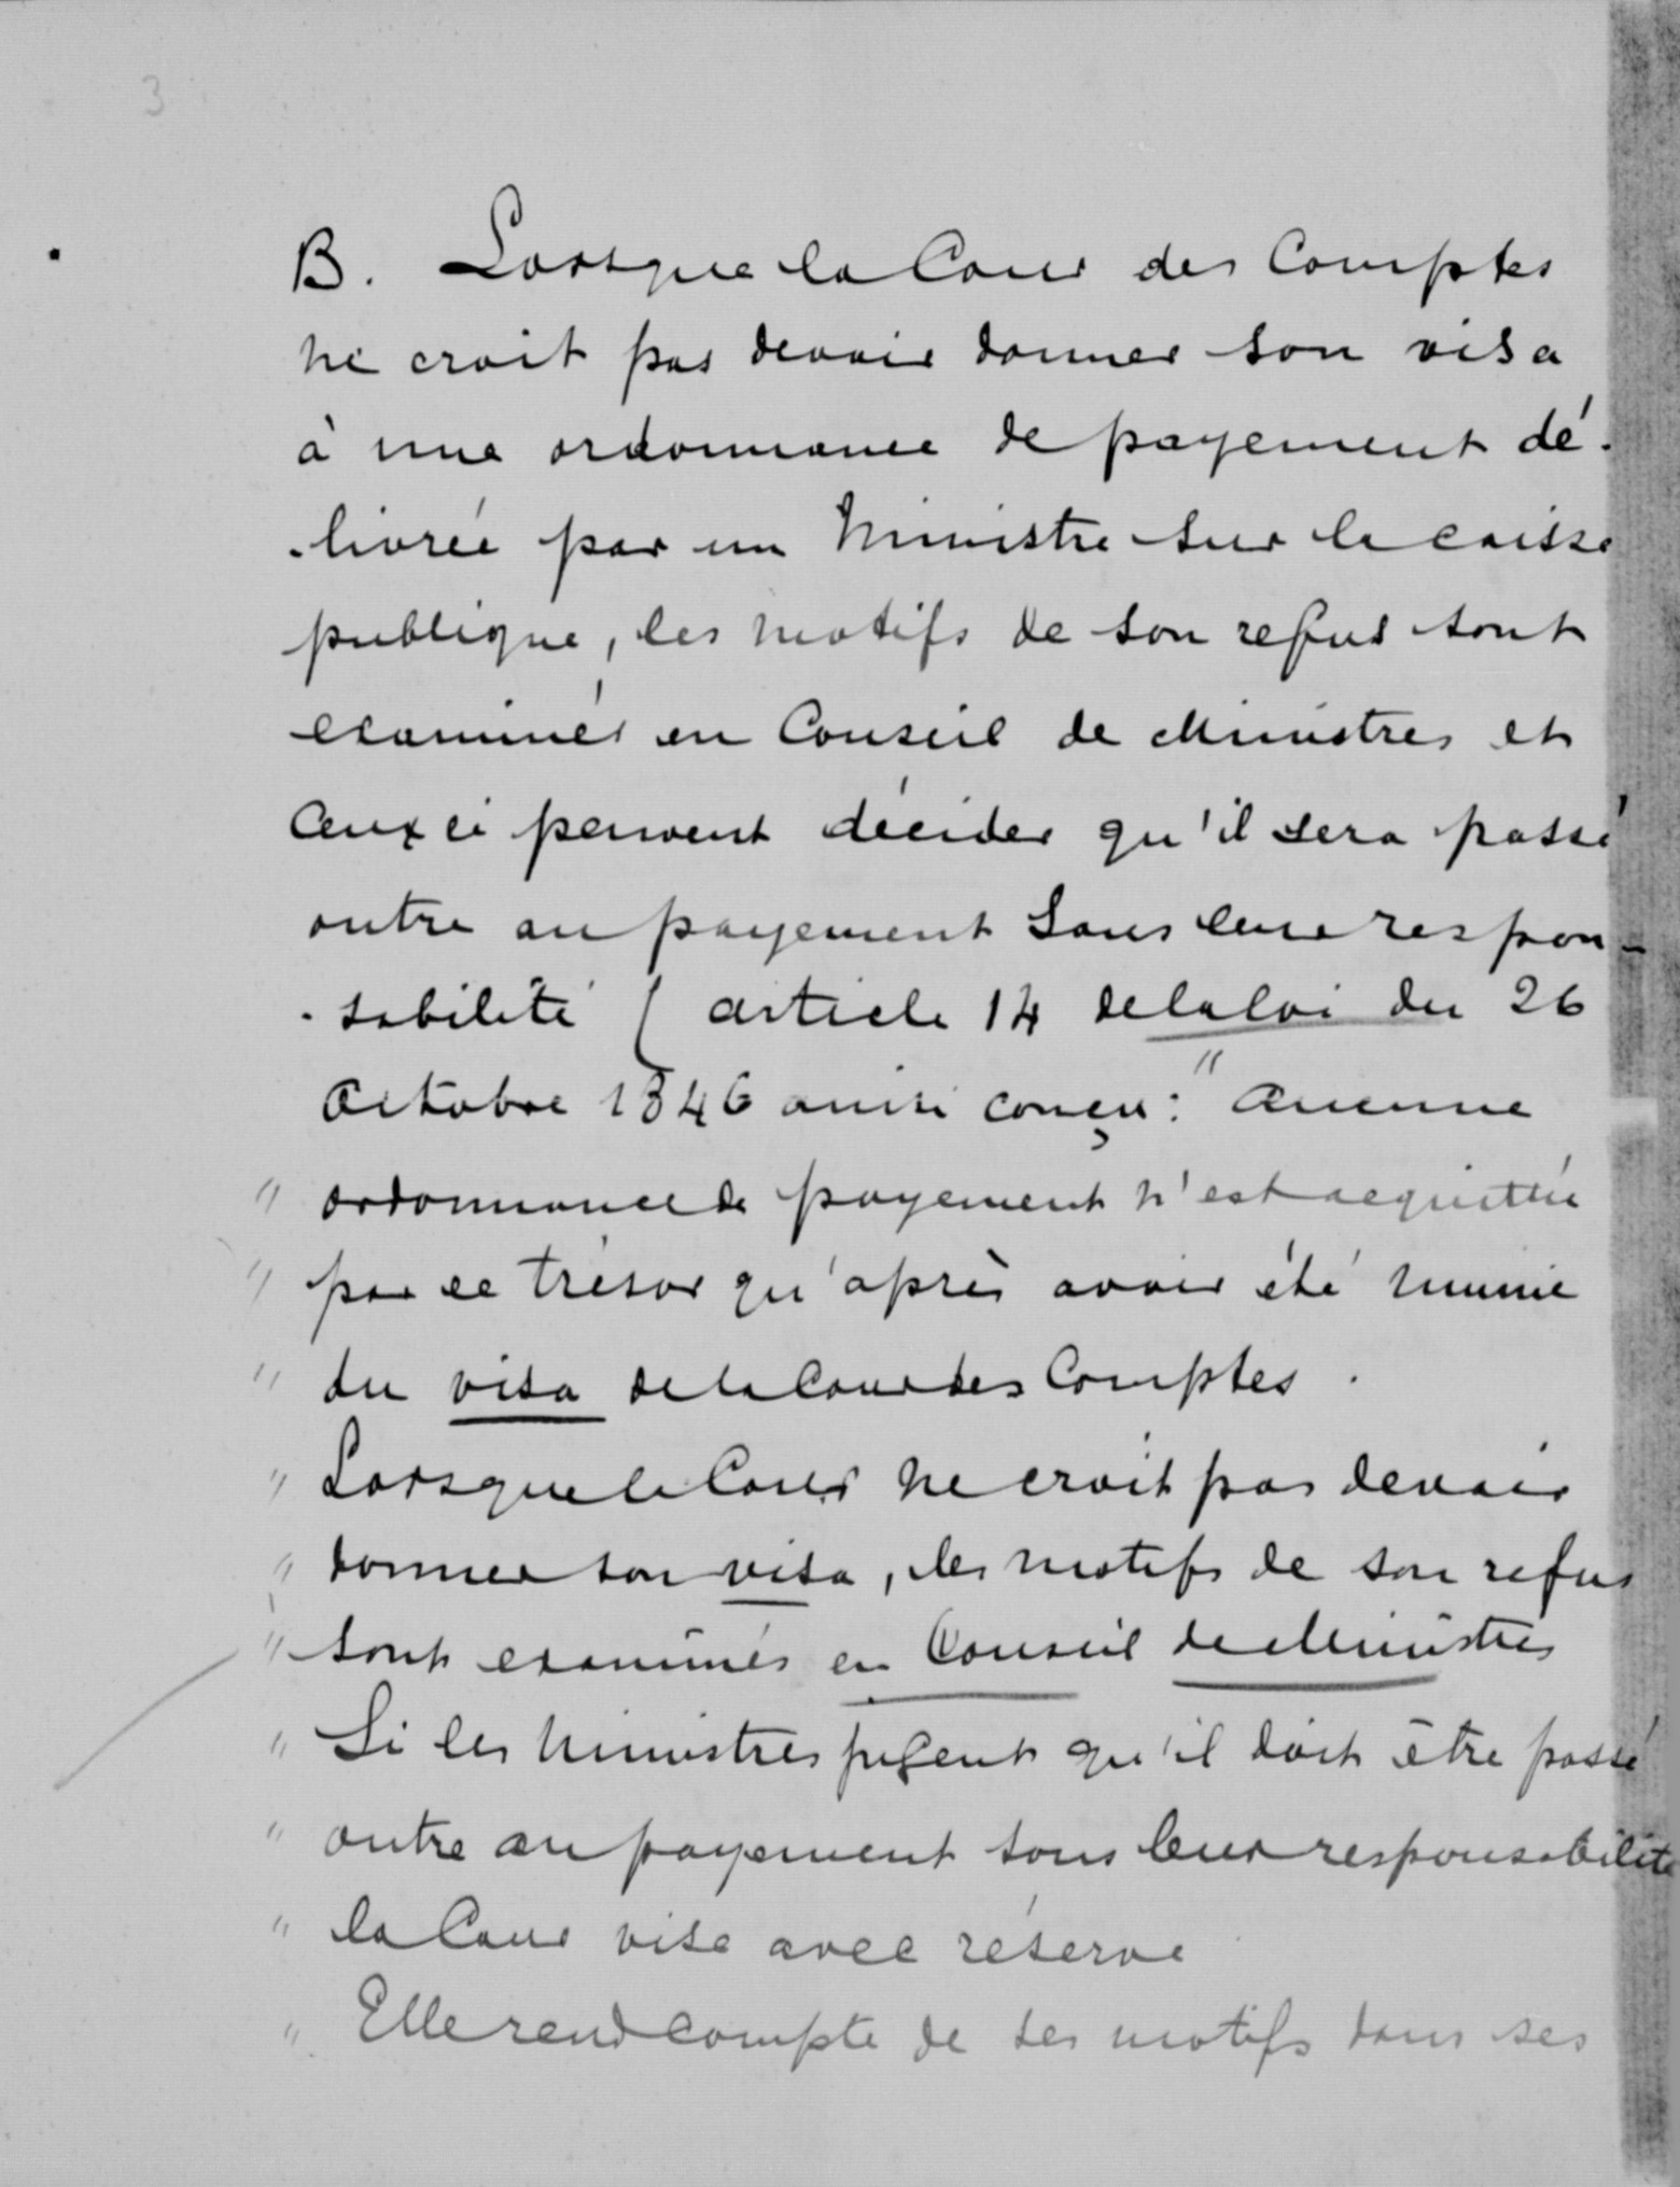 3
B. Lorsque la Cour des Comptes
ne croit pas devoir donner son visa
à une ordonnance de payement dé-
-livrée par un Ministre sur la caisse
publique, les motifs de son refus sont
examinés en Conseil de Ministres et
Ceux ci peuvent décider qu'il sera passé
outre au payement sous leur respon-
-sabilité ( article 14 de la loi du 26
Octobre 1846 ainsi conçu: " Aucune
" ordonnance de payement n'est acquittée
" par le trésor qu'après avoir été munie
" du visa de la Cour des Comptes.
" Lorsque la Cour ne croit pas devoir
" donner son visa, les motifs de son refus
" sont examinés en Conseil de Ministres
" Si les Ministres jugent qu'il doit être passé
" outre au payement sous leur responsabilité
" la Cour vise avec réserve
" Elle rend compte de ses motifs dans ses